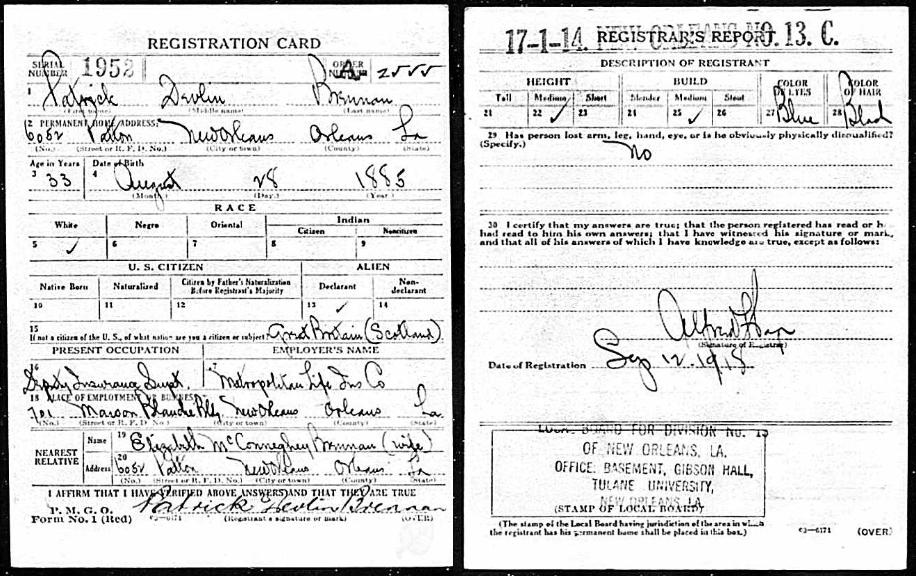 REGISTRATION CARD
SERIAL NUMBER 1952 ORDER NUMBER A 2555
1 Patrick Devlin Brennan
(First name) (Middle name) (Last name)
2 PERMANENT HOME ADDRESS:
6052 Patton New Orleans Orleans La
(No.) (Street or R. F. D. No.) (City or town) (County) (State)
Age in Years Date of Birth
3 33 4 August 28 1885
(Month) (Day) (Year)
RACE
White Negro Oriental Indian
Citizen Noncitizen
5 ✓ 6 7 8 9
U. S. CITIZEN ALIEN
Native Born Naturalized Citizen by Father's Naturalization Before Registrant's Majority Declarant Non-declarant
10 11 12 13 ✓ 14
15
If not a citizen of the U. S., of what nation are you a citizen or subject? Great Britain (Scotland)
PRESENT OCCUPATION EMPLOYER'S NAME
16 Deputy Insurance Supt. 17 Metropolitan Life Ins Co
18 PLACE OF EMPLOYMENT OR BUSINESS:
701 Maison Blanche Bldg New Orleans Orleans La.
(No.) (Street or R. F. D. No.) (City or town) (County) (State)
NEAREST RELATIVE
Name 19 Elizabeth McConneghey Brennan (wife)
Address 20 6052 Patton New Orleans Orleans La
(No.) (Street or R. F. D. No.) (City or town) (County) (State)
I AFFIRM THAT I HAVE VERIFIED ABOVE ANSWERS AND THAT THEY ARE TRUE
P. M. G. O.
Form No. 1 (Red) 03-6171 Patrick Devlin Brennan
(Registrant's signature or mark) (OVER)
17-1-14. NEW ORLEANS NO. 13. C.
REGISTRAR'S REPORT
DESCRIPTION OF REGISTRANT
HEIGHT BUILD COLOR OF EYES COLOR OF HAIR
Tall Medium Short Slender Medium Stout
21 22 ✓ 23 24 25 ✓ 26 27 Blue 28 Black
29 Has person lost arm, leg, hand, eye, or is he obviously physically disqualified?
(Specify.) No
30 I certify that my answers are true; that the person registered has read or has
had read to him his own answers; that I have witnessed his signature or mark,
and that all of his answers of which I have knowledge are true, except as follows:
Alfred
(Signature of Registrar)
Date of Registration Sep 12. 1918
LOCAL BOARD FOR DIVISION NO. 13
OF NEW ORLEANS, LA.
OFFICE: BASEMENT, GIBSON HALL,
TULANE UNIVERSITY,
NEW ORLEANS, LA
(STAMP OF LOCAL BOARD)
(The stamp of the Local Board having jurisdiction of the area in which
the registrant has his permanent home shall be placed in this box.)
03-6171 (OVER)